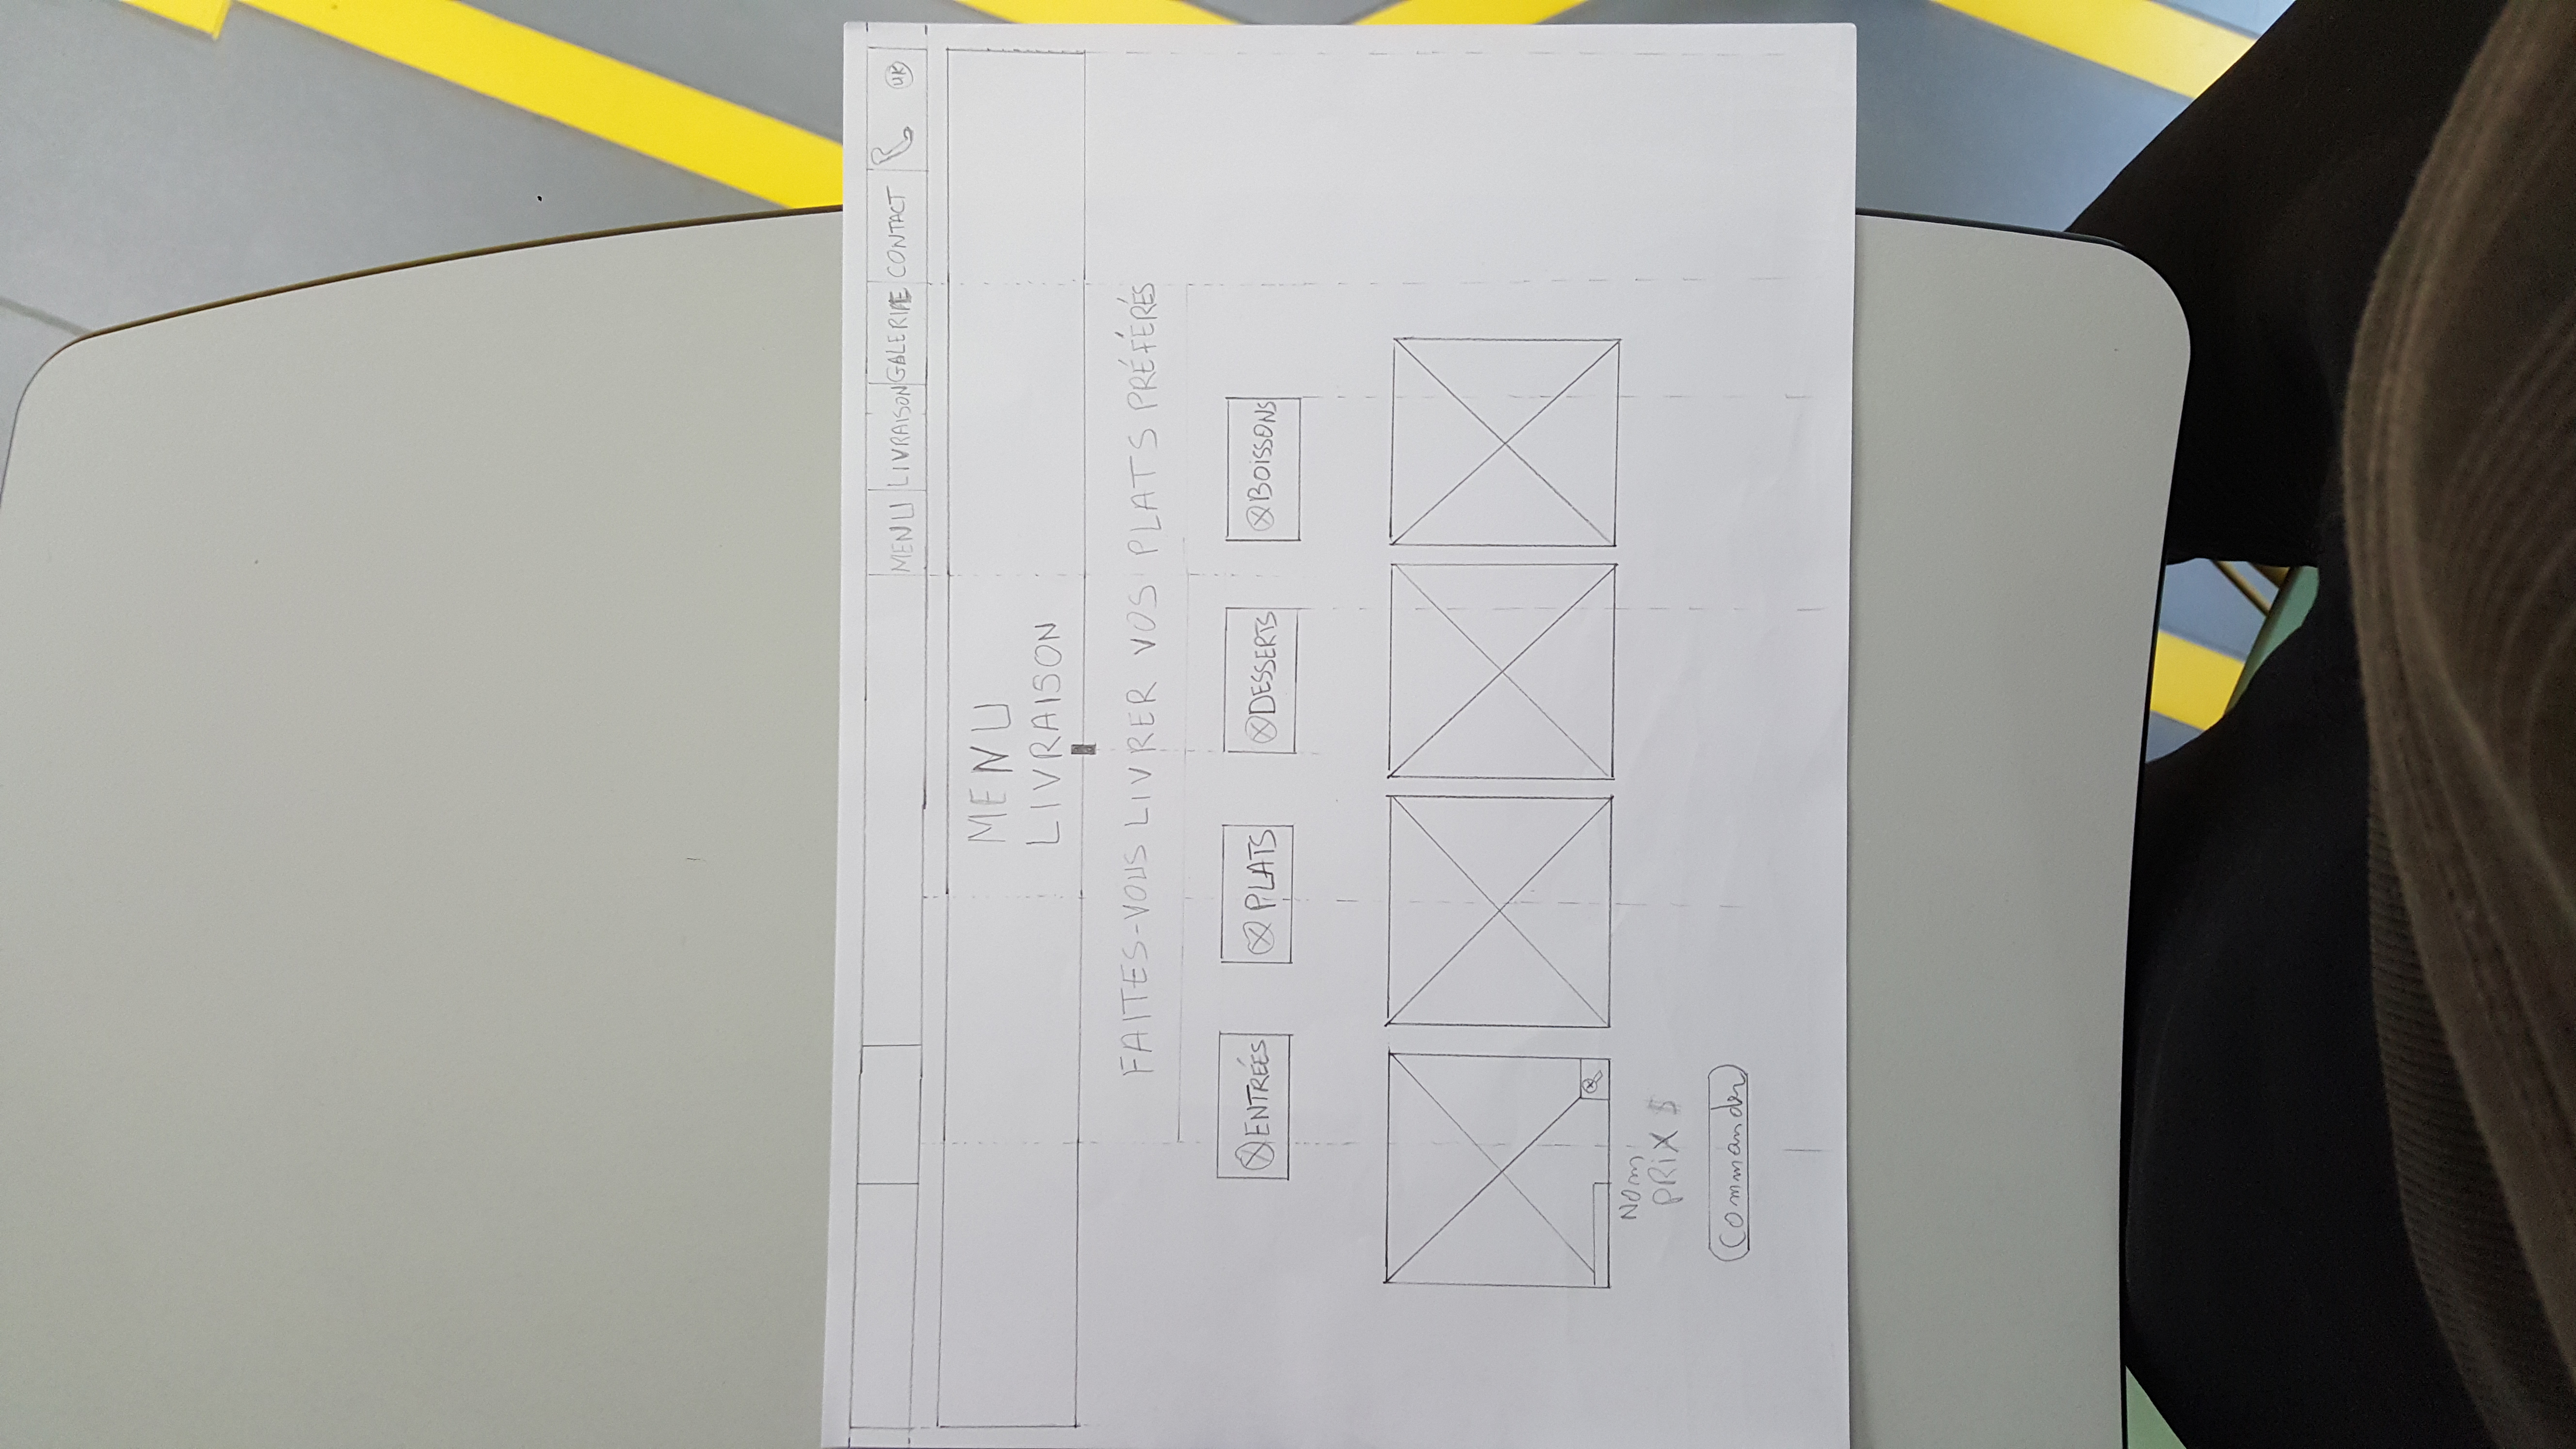 MENU LIVRAISON GALERIE CONTACT UK
MENU
LIVRAISON
FAITES-VOUS LIVRER VOS PLATS PRÉFÉRÉS
ENTRÉES PLATS DESSERTS BOISSONS
Nom
PRIX $
Commander